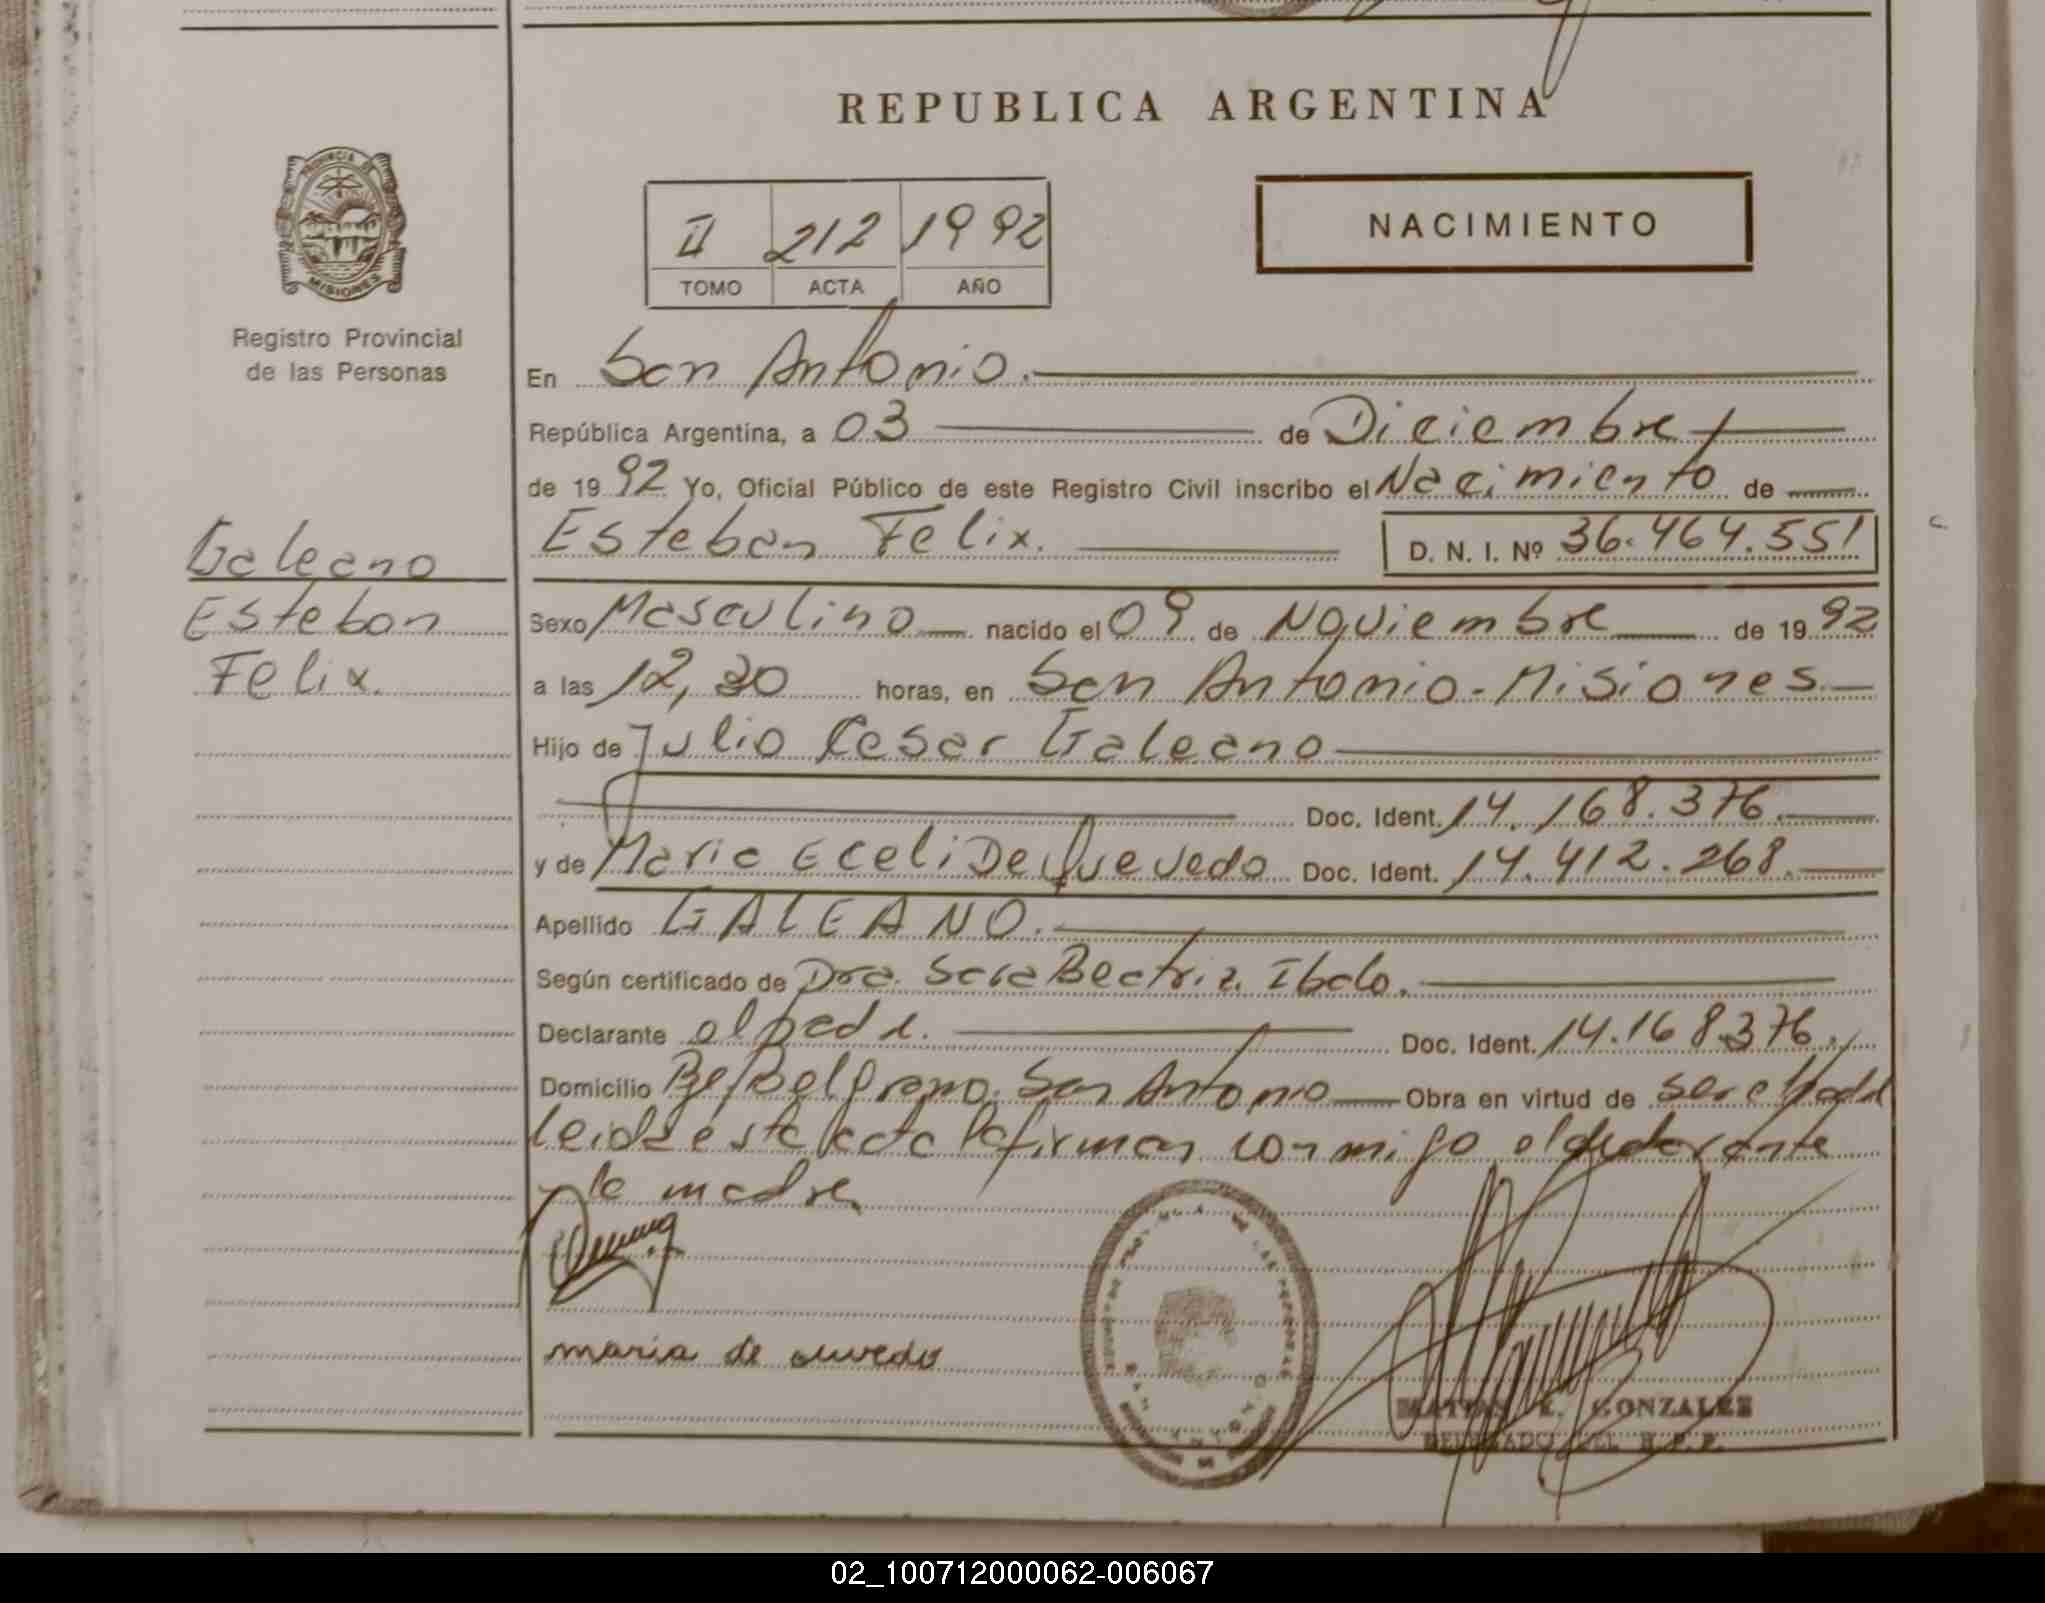 REPUBLICA ARGENTINA
PROVINCIA DE
MISIONES
Registro Provincial
de las Personas
II 212 1992
TOMO ACTA AÑO
NACIMIENTO
En San Antonio.
República Argentina, a 03 de Diciembre
de 1992 Yo, Oficial Público de este Registro Civil inscribo el Nacimiento de
Galeano
Esteban Felix. D. N. I. Nº 36.464.551
Esteban
Sexo Masculino nacido el 09 de Noviembre de 1992
Felix.
a las 12,30 horas, en San Antonio-Misiones
Hijo de Julio Cesar Galeano
Doc. Ident. 14.168.376.
y de Maria Eceli De Quevedo Doc. Ident. 14.412.268.
Apellido GALEANO.
Según certificado de Dra. Sara Beatriz Ibalo.
Declarante el padre. Doc. Ident. 14.168.376.
Domicilio Belgrano. San Antonio Obra en virtud de ser el padre
leida esta acta la firman conmigo el declarante
y la madre
maria de quevedo
MATIAS E. GONZALEZ
DELEGADO DEL R. P. P.
02_100712000062-006067